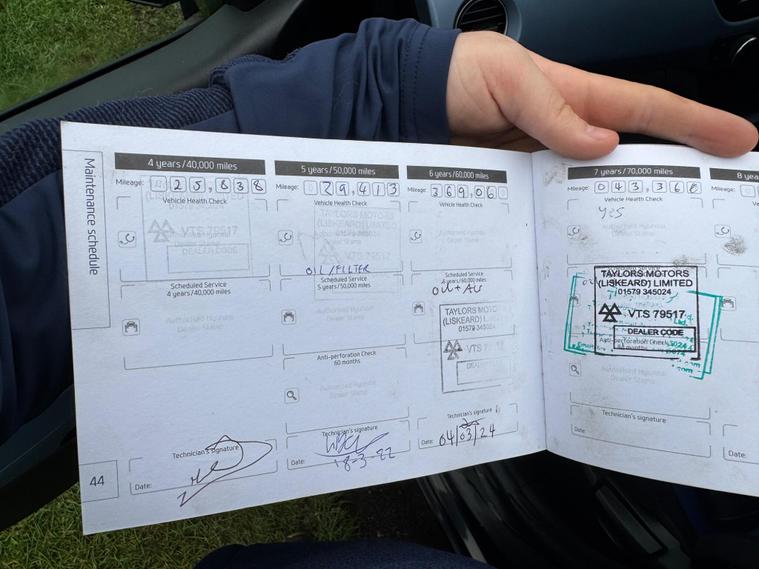 Maintenance schedule
44
4 years/40,000 miles
Mileage: 25,838
Vehicle Health Check
VTS 79517
DEALER CODE
Scheduled Service
4 years/40,000 miles
Authorised Hyundai
Dealer Stamp
Technician's signature
Date:
5 years/50,000 miles
Mileage: 29,413
Vehicle Health Check
TAYLORS MOTORS
(LISKEARD) LIMITED
VTS 79517
OIL/FILTER
Scheduled Service
5 years/50,000 miles
Authorised Hyundai
Dealer Stamp
Anti-perforation Check
60 months
Authorised Hyundai
Dealer Stamp
Technician's signature
Date: 18-3-22
6 years/60,000 miles
Mileage: 369,06
Vehicle Health Check
Authorised Hyundai
Dealer Stamp
Scheduled Service
TAYLORS MOTO
(LISKEARD) L
01579 345024
VTS 79
DEALER
Technician's signature
Date: 04/03/24
7 years/70,000 miles
Mileage: 043,368
Vehicle Health Check
YES
Authorised Hyundai
Dealer Stamp
TAYLORS MOTORS
(LISKEARD) LIMITED
01579 345024
VTS 79517
DEALER CODE
Anti-perforation Check
Authorised Hyundai
Dealer Stamp
Technician's signature
Date:
8 yea
Mileage: